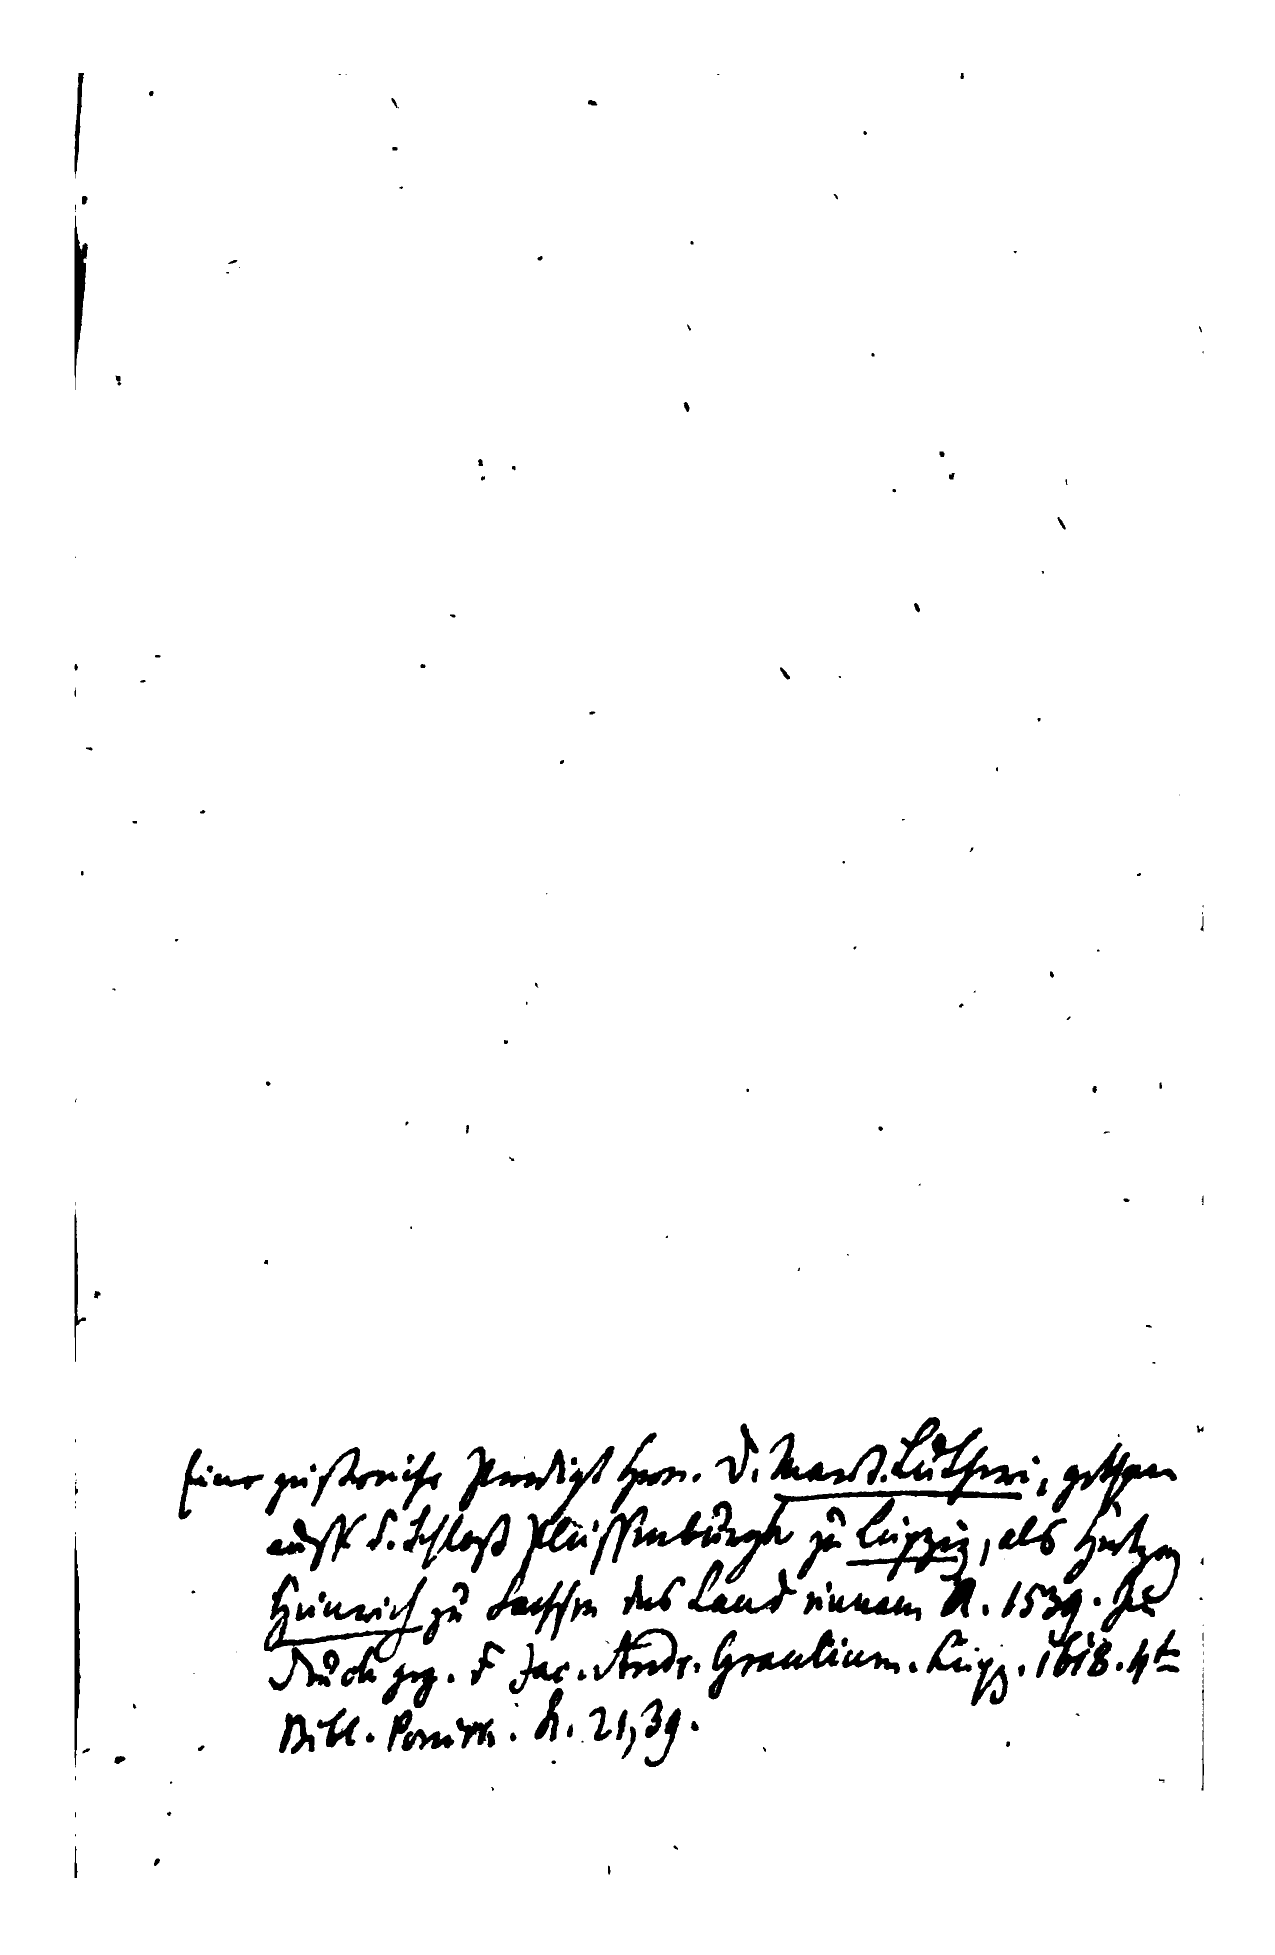 Eine geistreiche Predigt Hrn. D. Mart. Lutheri, gethan
auff d. Schloß Pleissenburgk zu Leipzig, als Hertzog
Heinrich zu Sachsen das Land einnam A. 1539. In
Druck geg. d Jac. Andr. Graulium. Leipz. 1618. 4t
Bibl. Ponick. h. 21,39.